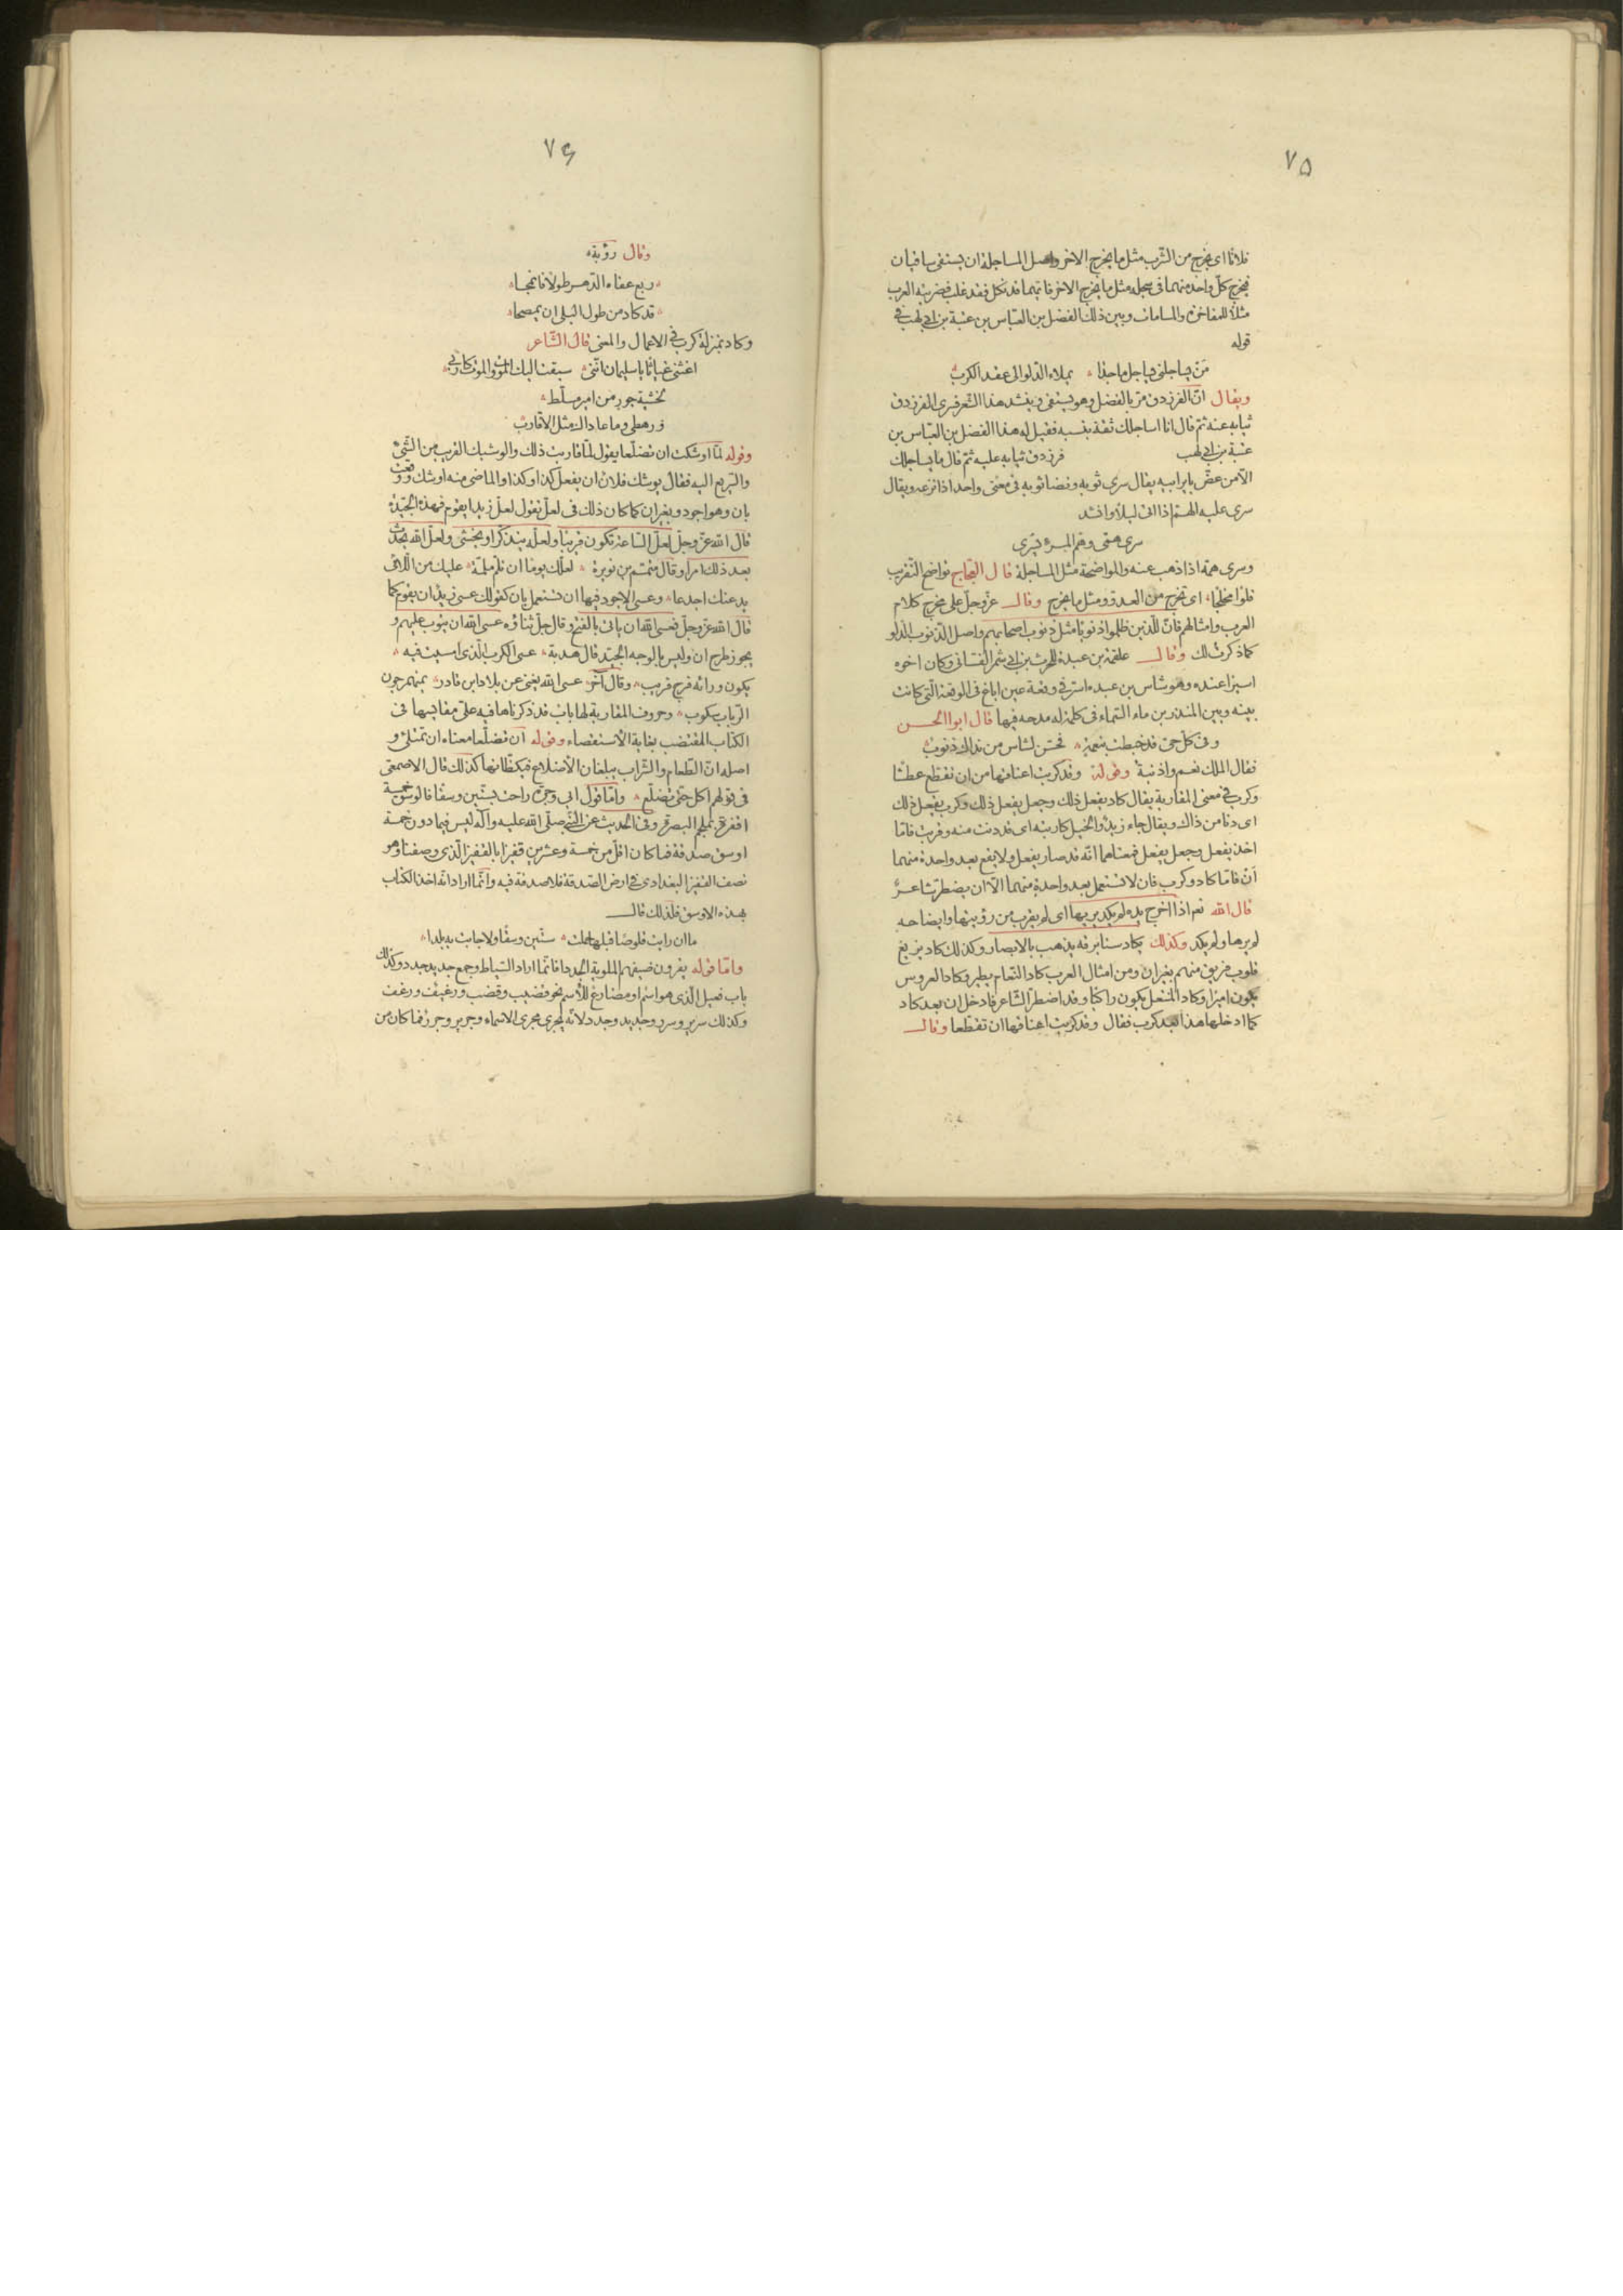 ٧٥
فلانًا اى يخرج من الشرب مثل ما يخرج الاخر واصل المساجلة ان يستقى ساقيان
فيخرج كلّ واحد منهما فى سجله مثل ما يخرج الاخر فايّهما قد نكل فقد غلب فضربته العرب
مثلاً للمفاخرة والمسامات وبين ذلك الفضل بن العبّاس بن عتبة بن ابى لهب فى
قوله
مَن يساجلنى يساجل ماجدًا يملاء الدّلو الى عقد الكرب
ويقال انّ الفرزدق مرّ بالفضل وهو يستقى وينشد هذا الشّعر فسرى الفرزدق
ثيابه عنه ثمّ قال انا اساجلك ثقة بنسبه فقيل له هذا الفضل بن العبّاس بن
عتبة بن ابى لهب فرد فرزدق ثيابه عليه ثمّ قال ما يساجلك
الّا من عضّ باير ابيه يقال سرى ثوبه ونضا ثوبه فى معنى واحد اذا نزعه ويقال
سرى عليه الهمّ اذا اتى ليلاً وانشد
سرى همّى وهمّ المرء يسرى
وسرى همّه اذا ذهب عنه والمواضحة مثل المساجلة قال العجّاج تواضح التقريب
قلوا مخلجًا اى تخرج من العدو مثل ما يخرج وقال عزّ وجلّ على مخرج كلام
العرب وامثالهم فانّ للّذين ظلموا ذنوبًا مثل ذنوب اصحابهم واصل الذّنوب الدّلو
كما ذكرت لك وقال علقمة بن عبدة للحرث بن ابى شمر الغسّانى وكان اخوه
اسيرًا عنده وهو شاس بن عبده اسر فى وقعة عين اباغ فى الوقعة الّتى كانت
بينه وبين المنذر بن ماء السّماء فى كلمة له مدحه فيها قال ابوا الحسن
وفى كلّ حىّ قد خبطت بنعمة فحقّ لشاس من نداك ذنوب
فقال الملك نعم واذنبة وقوله وقد كربت اعناقها من ان تقطع عطشًا
وكرب فى معنى المقاربة يقال كاد يفعل ذلك وجعل يفعل ذلك وكرب يفعل ذلك
اى دنا من ذاك ويقال جاء زيد والخيل كاربته اى قد دنت منه وقربت فامّا
اخذ يفعل وجعل يفعل فمعناهما انّه قد صار يفعل ولا يقع بعد واحدة منهما
أن فامّا كاد وكرب فان لا تستعمل بعد واحدة منهما الّا ان يضطرّ شاعر
قال الله تعم اذا اخرج يده لم يكد يريها اى لم يقرب من رؤيتها وايضاحه
لم يرها ولم يكد وكذلك يكاد سنا برقه يذهب بالابصار وكذلك كاد يزيغ
قلوب فريق منهم بغير ان ومن امثال العرب كاد النّعام يطير وكاد العروس
يكون اميرًا وكاد المنتعل يكون راكبًا وقد اضطرّ الشّاعر فادخل ان بعد كاد
كما ادخلها هذا بعد كرب فقال وقد كربت اعناقها ان تقطعا وقال
٧٦
وقال رؤبة
ربع عفاه الدّهر طولاً فانمحا
قد كاد من طول البلى ان يمصحا
وكاد بمنزلة كرب فى الاعمال والمعنى قال الشّاعر
اغثنى غياثًا يا سليمان انّنى سبقت اليك الموت والموت كاربى
خشية جور من امير مسلّط
ورهطى وما عاداك مثل الاقارب
وقوله لمّا اوشكت ان تضلّعا يقول لمّا قاربت ذلك والوشيك القريب من الشّئ
والسّريع اليه فقال يوشك فلان ان يفعل كذا وكذا والماضى منه اوشك ووقعت
بان وهو اجود وبغير ان كما كان ذلك فى لعلّ تقول لعلّ زيدا يقوم فهذه الجيّدة
قال الله عزّ وجلّ لعلّ السّاعة تكون قريبًا ولعلّه يتذكّر او يخشى ولعلّ الله يحدث
بعد ذلك امرا وقال متمّم بن نويرة لعلّك يومًا ان تلمّ ملمّة عليك من اللّائى
يدعنك اجدعا وعسى الاجود فيها ان تستعمل بان كقولك عسى زيد ان يقوم كما
قال الله عزّ وجلّ فعسى الله ان ياتى بالفتح وقال جلّ ثناؤه عسى الله ان يتوب عليهم و
يجوز طرح ان وليس بالوجه الجيّد قال هدبة عسى الكرب الّذى امسيت فيه
يكون ورائه فرج قريب وقال آخر عسى الله يغنى عن بلاد ابن قادر بمنهمر جون
الرّباب سكوب وحروف المقاربة لها باب قد ذكرناها فيه على مقاييسها فى
الكتاب المقتضب بغاية الاستقصاء وقوله أن تضلّعا معناه ان تمتلئ و
اصله انّ الطّعام والشّراب يبلغان الأضلاع فيكظّانها كذلك قال الاصمعى
فى قولهم اكل حتى تضلّع وامّا قول ابى وجزة راحت بستّين وسقًا فالوسق خمسة
اقفزة بملجم البصرة وفى الحديث عن النّبى صلّى الله عليه وآله ليس فيما دون خمسة
اوسق صدقة فما كان اقلّ من خمسة وعشرين قفيزا بالقفيز الّذى وصفنا وهو
نصف القفيز البغدادى فى ارض الصّدقة فلا صدقة فيه وانّما اراد انّه اخذ الكتاب
بهذه الاوسق فلذلك قال
ما ان رايت قلوصًا قبلها حملت ستّين وسقًا ولا جابت به بلدا
وامّا قوله يقرون ضيفهم الملوية الجددا فانّما اراد السّياط وجمع جديد جدد وكذلك
باب فعيل الّذى هو اسم او مضارع للأسم نحو قضيب وقضب ورغيف ورغف
وكذلك سرير وسرر وجديد وجدد لانّه يجرى مجرى الاسماء وجرير وجرر فما كان من